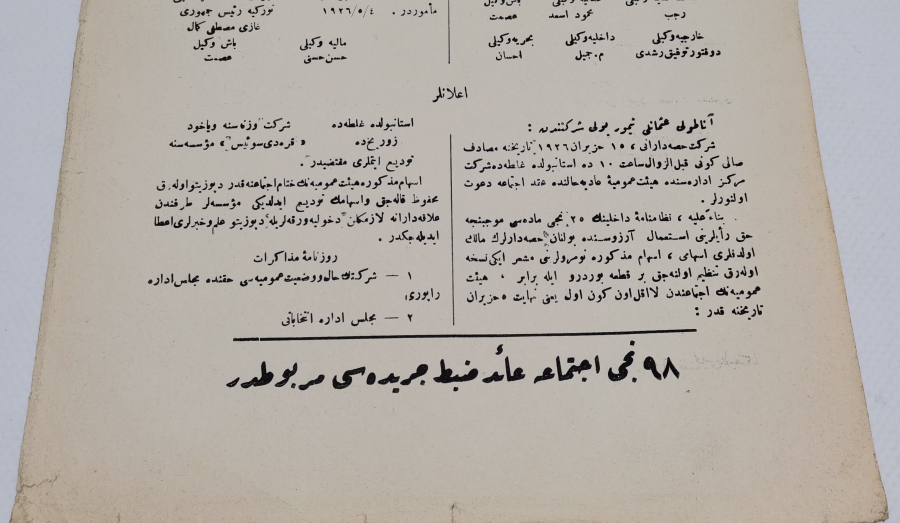 رجب محمود اسعد عصمت
خارجیه وکیلی داخلیه وکیلی بحریه وکیلی
دوقتور توفیق رشدی م. جمیل احسان
مأموردر . ١٩٢٦/٥/٤ تورکیه رئیس جمهوری
غازی مصطفی کمال
مالیه وکیلی باش وکیل
حسن حسنی عصمت
اعلانلر
آناطولی عثمانی تیمور یولی شرکتندن :
شرکت حصه‌دارانی ، ١٥ حزیران ١٩٢٦ تاریخنه مصادف
صالی کونی قبل الزوال ساعت ١٠ ده استانبولده غلطه‌ده شرکت
مرکز اداره‌سنده هیئت عمومیهٔ عادیه حالنده عقد اجتماعه دعوت
اولنورلر .
بناءً علیه ، نظامنامهٔ داخلینك ٢٥ نجی ماده‌سی موجبنجه
حق رأیلرینی استعمال آرزوسنده بولنان حصه‌دارلرك مالك
اولدقلری اسهامی ، اسهام مذکوره نومرولرینی مشعر ایکی نسخه
اوله‌رق تنظیم اولنه‌جق بر قطعه بوردرو ایله برابر ، هیئت
عمومیه‌نك اجتماعندن لااقل اون کون اول یعنی نهایت ٥ حزیران
تاریخنه قدر :
استانبولده غلطه‌ده شرکت وزنه‌سنه ویاخود
زوریخ‌ده « قره‌دی سوئیس » مؤسسه‌سنه
تودیع ایتملری مقتضیدر .
اسهام مذکوره هیئت عمومیه‌نك ختام اجتماعنه قدر دپوزیتو اوله‌رق
محفوظ قاله‌جق و اسهامك تودیع ایدلدیکی مؤسسه‌لر طرفندن
علاقه‌دارانه لازمکلن دخولیه ورقه‌لریله دپوزیتو علم وخبرلری اعطا
ایدیله‌جکدر .
روزنامهٔ مذاکرات
١ — شرکتك حال ووضعیت عمومیه‌سی حقنده مجلس اداره
راپوری
٢ — مجلس اداره انتخاباتی
٩٨ نجی اجتماعه عائد ضبط جریده‌سی مربوطدر